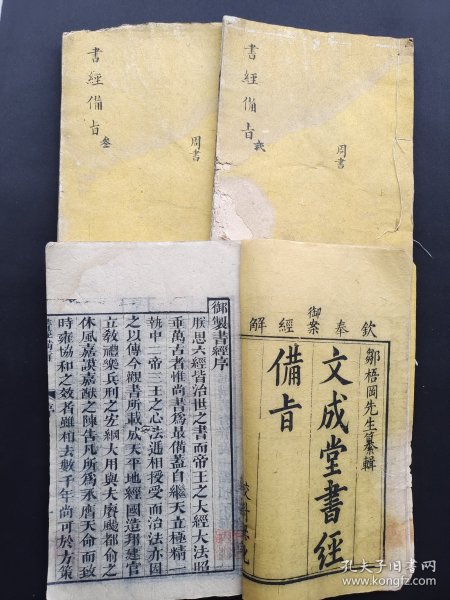 書經備旨
叁
周書
書經備旨
周書
欽奉御案經解
鄒梧岡先生纂輯
文成堂書經
備旨
御製書經序
朕思六經皆治世之書而帝王之大經大法昭
垂萬古者惟尚書為最備蓋自繼天立極精
執中二帝三王之心法遞相授受而治法亦因
之以傳今觀書所載成天平地經國造邦建官
立教禮樂兵刑之宏綱大用與夫賡颺都俞之
休風嘉謨嘉猷之陳告凡所為承膺天命而致
時雍協和之效者雖相去數千年尚可於方策
孔夫子旧书网